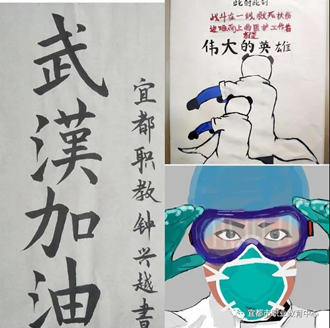 武漢加油
宜都职教钟兴越書
此时此刻
战斗在一线,救死扶伤
的医护工作者
伟大的英雄
宜都市职业教育中心